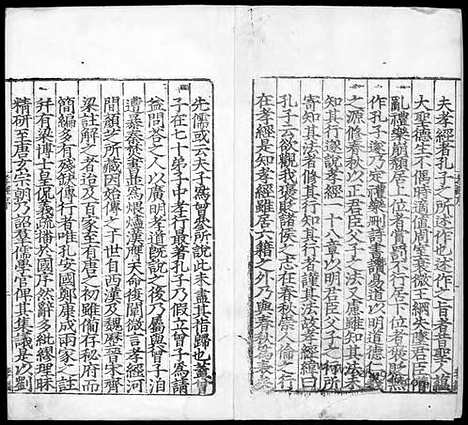 夫孝經者孔子之所述作也述作之旨者昔聖人蘊
大聖德生不偶時適值周室衰微王綱失墜君臣僭
亂禮樂崩頹居上位者賞罰不行居下位者襃貶無
作孔子遂乃定禮樂刪詩書讚易道以明道德仁義
之源修春秋以正君臣父子之法又慮雖知其法未
知其行遂說孝經一十八章以明君臣父子之行所
寄知其法者修其行知其行者謹其法故孝經緯曰
孔子云欲觀我襃貶諸侯之志在春秋崇人倫之行
在孝經是知孝經雖居六籍之外乃與春秋為表矣
先儒或云夫子為曾參所說此未盡其指歸也蓋曾
子在七十弟子中孝行最著孔子乃假立曾子為請
益問答之人以廣明孝道既說之後乃屬與曾子洎
遭暴秦焚書並為煨燼漢膺天命復闡微言孝經河
間顏芝所藏因始傳之于世自西漢及魏歷晉宋齊
梁註解之者迨及百家至有唐之初雖備存秘府而
簡編多有殘缺傳行者唯孔安國鄭康成兩家之註
并有梁博士皇侃義疏播於國序然辭多紕繆理昧
精研至唐玄宗朝乃詔羣儒學官俾其集議是以劉